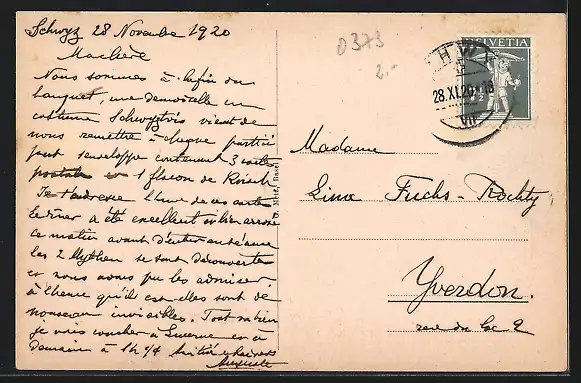 Schwyz 28 Novembre 1920
Ma chère
Nous sommes à la fin du
banquet, une demoiselle en
costume Schwytois vient de
nous remettre à chaque partici
pant enveloppe contenant 3 cartes
postale 1 flacon de Kirsch
Je t'adresse l'une de ces cartes
Le dîner a été excellent et bien arrosé
ce matin avant d'entrer en séance
les 2 Mythen se sont découvertes
et nous avons pu les admirer,
à l'heure qu'il est elles sont de
nouveau invisibles. Tout va bien
je vais coucher à Lucerne
Demain à 1h ¼ Amitiés
Auguste
0373
2.-
HELVETIA
28.XI.20
VII
D. Metz, Basel
Madame
Lina Fuchs-Rochty
Yverdon.
rue du Lac 2